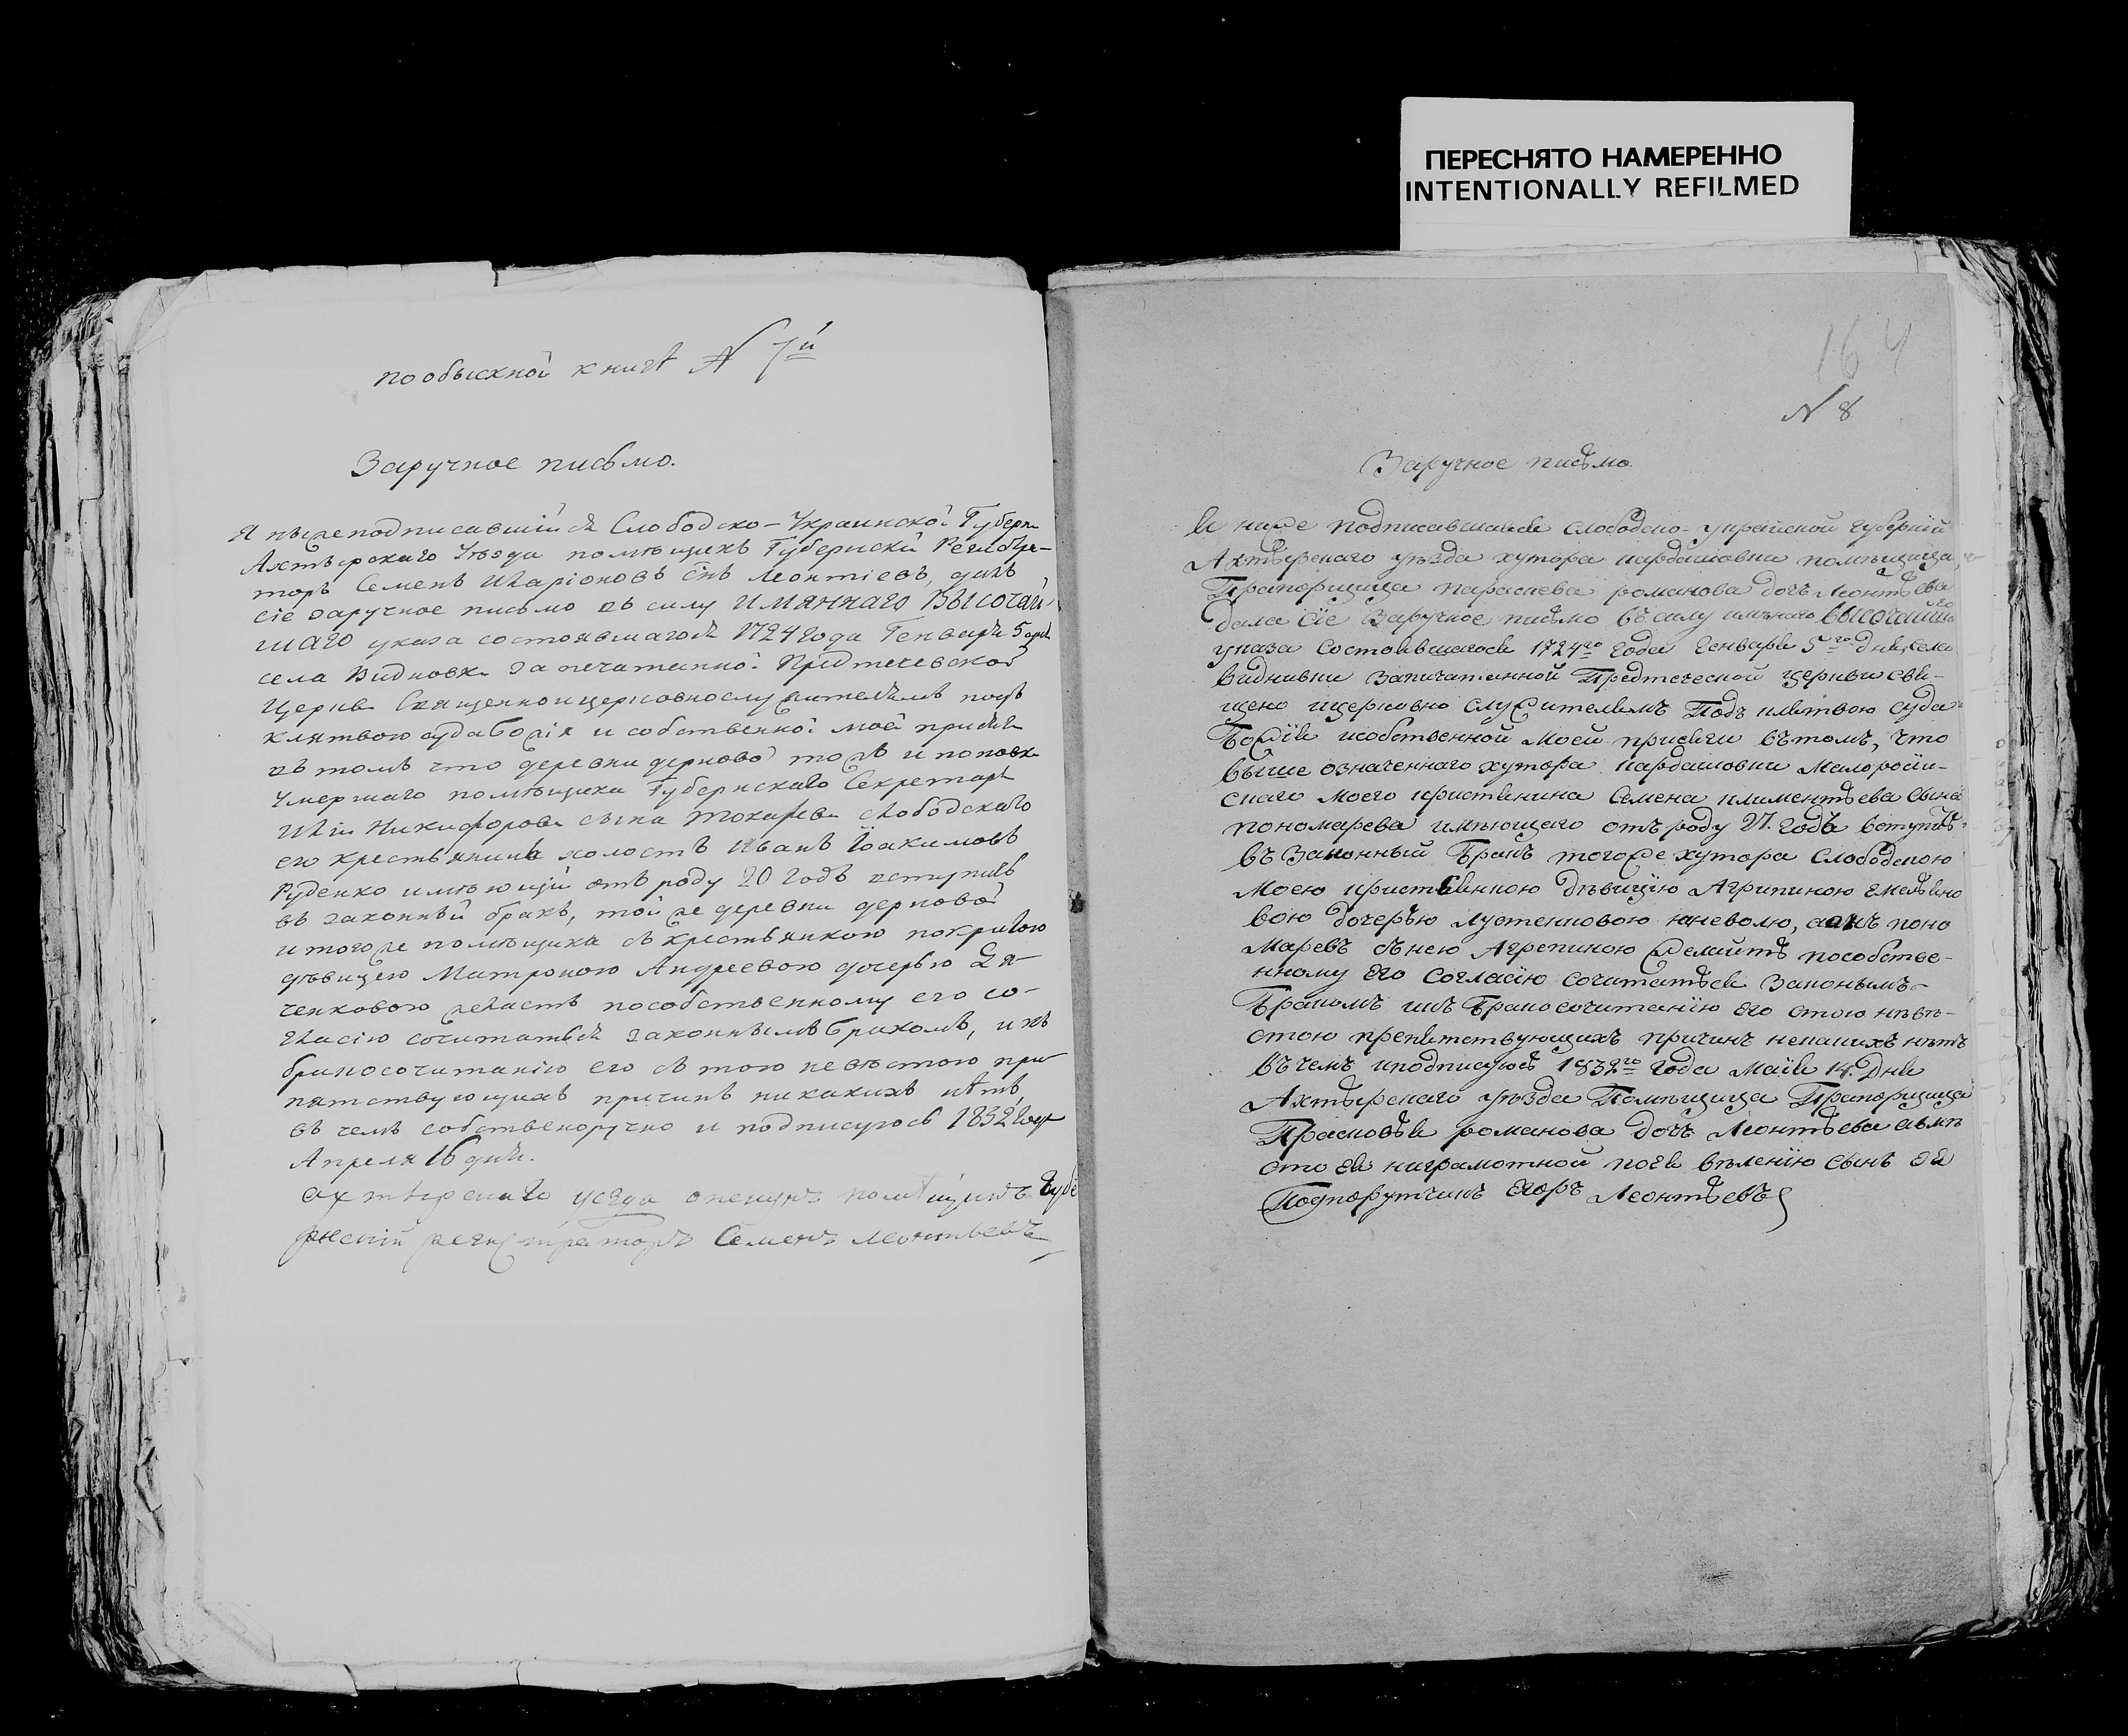 ПЕРЕСНЯТО НАМЕРЕННО
INTENTIONALLY REFILMED
пообыскной книгѣ № 7й
Заручное письмо.
Я нижеподписавшійся Слободско-Украинской Губерн
Ахтырскаго Уѣзда помѣщикъ Губернскій Регистра-
торъ Семенъ Иларіоновъ сн҃ъ Леонтіевъ, далъ
сіе заручное письмо въ силу ИМЯННАГО ВЫСОЧАЙ-
ШАГО указа состоявшагося 1724 года Генваря 5 дня
села Видновки запечатанной Предтечевской
Церкви Священноицерковнослужителямъ подъ
клятвою суда Божія и собственной моей присяги
въ томъ что деревни дерновой тожъ и поповки
Умершаго помѣщика Губернскаго Секретаря
Иліи Никифорова сына Токарева слободскаго
его крестьянинъ холостъ Иванъ Іоакимовъ
Руденко имѣющій отъ роду 20 годъ вступилъ
въ законный бракъ, той же деревни дерновой
и того же помѣщика съ крестьянкою
дѣвицею Матроною Андреевою дочерью Дя-
ченковою желаетъ пособственному его со-
гласію сочитаться законнымъ бракомъ, и къ
бракосочитанію его съ тою невѣстою пре-
пятствующихъ причинъ никакихъ нѣтъ
въ чемъ собственоручно и подписуюсь 1832 года
Апреля 16 дня.
ахтырскаго уезда опекунъ помѣщикъ Губе
рнскій регистраторъ Семенъ Леонтьевъ
164
№ 8
Заручное писмо.
Я ниже подписавшаяся слободско-украиской губерніи
Ахтырскаго уѣзда хутора кардашовки помѣщица,
Прапорщица параскева романова дочь Леонтьева
дала сіе Заручное писмо въ силу имѣнаго высочайша
указа Состоявшагося 1724го года Генваря 5го дня, села
видиивки Запичатанной Предтеческой церкви свя-
щено ицерковно служителямъ Подъ клятвою суда
Божія исобственной Моей присяги вътомъ, что
выше означеннаго хутора кардашовки Малоросій-
скаго Моего кристянина Семена климентьева сына
пономарева имѣющаго отъ роду 27. годъ вступить
въ Законный Бракъ тогоже хутора Слободскою
Моею кристянкою дѣвицію Агрипиною
вою дочерью Лустенковою юневолю, аонъ поно
Маревъ сънею Агрепиною желаитъ пособстве-
нному его Согласію сочитаться Законымъ
Бракомъ икъ Бракосочитанію его стою нѣвѣ-
стою препятствующихъ причинъ некакихъ нѣтъ
въчемъ иподписуюсь 1832го года Маія 14. Дня
Ахтырскаго уѣзда Помѣщица Прапорщица
Прасковья романова дочь Леонтьева авмѣ
сто ея ниграмотной поея вѣленію сынъ ея
Подпорутчикъ егоръ Леонтьевъ